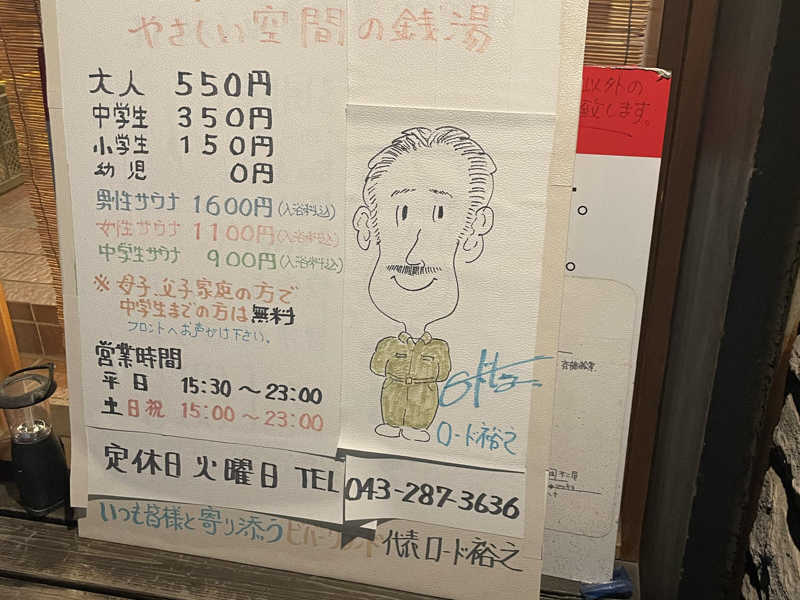 やさしい空間の銭湯
大人 550円
中学生 350円
小学生 150円
幼児 0円
男性サウナ 1600円(入浴料込)
女性サウナ 1100円(入浴料込)
中学生サウナ 900円(入浴料込)
※母子、父子家庭の方で
中学生までの方は無料
フロントへお声がけ下さい。
営業時間
平日 15:30～23:00
土日祝 15:00～23:00
ロード裕之
定休日 火曜日 TEL 043-287-3636
いつも皆様と寄り添う
代表 ロード裕之
以外の
致します。